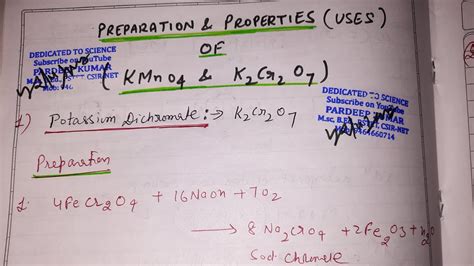 PREPARATION & PROPERTIES (USES)
OF
( KMnO4 & K2Cr2O7 )
DEDICATED TO SCIENCE
Subscribe on YouTube
PARDEEP KUMAR
CSIR-NET
DEDICATED TO SCIENCE
Subscribe on YouTube
PARDEEP KUMAR
M.sc, B.Ed, CSIR-NET
1) Potassium Dichromate:→ K2Cr2O7
Preparation
1: 4FeCr2O4 + 16NaOH + 7O2
→ 8 Na2CrO4 + 2Fe2O3 + H2O
Sod chromate